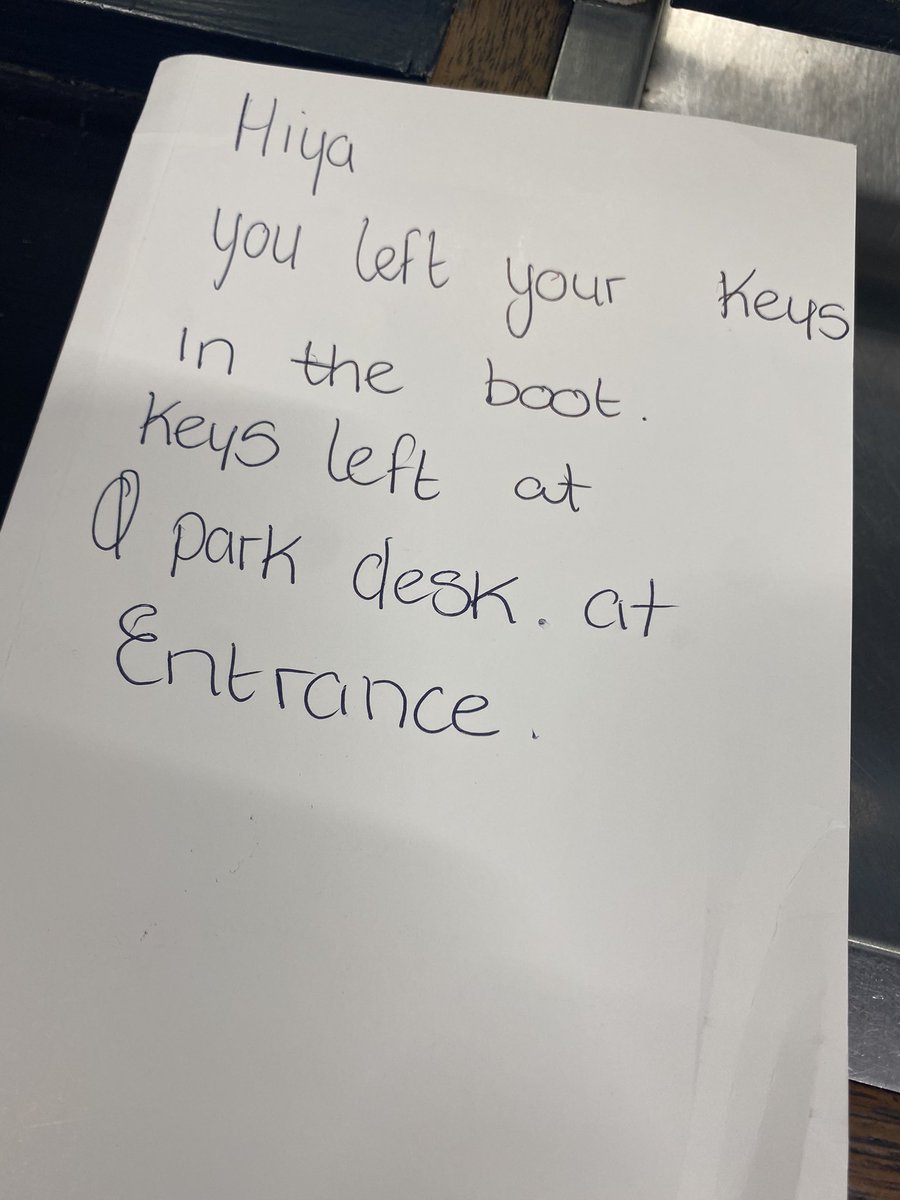 Hiya
you left your keys
in the boot.
Keys left at
Q park desk. at
Entrance.